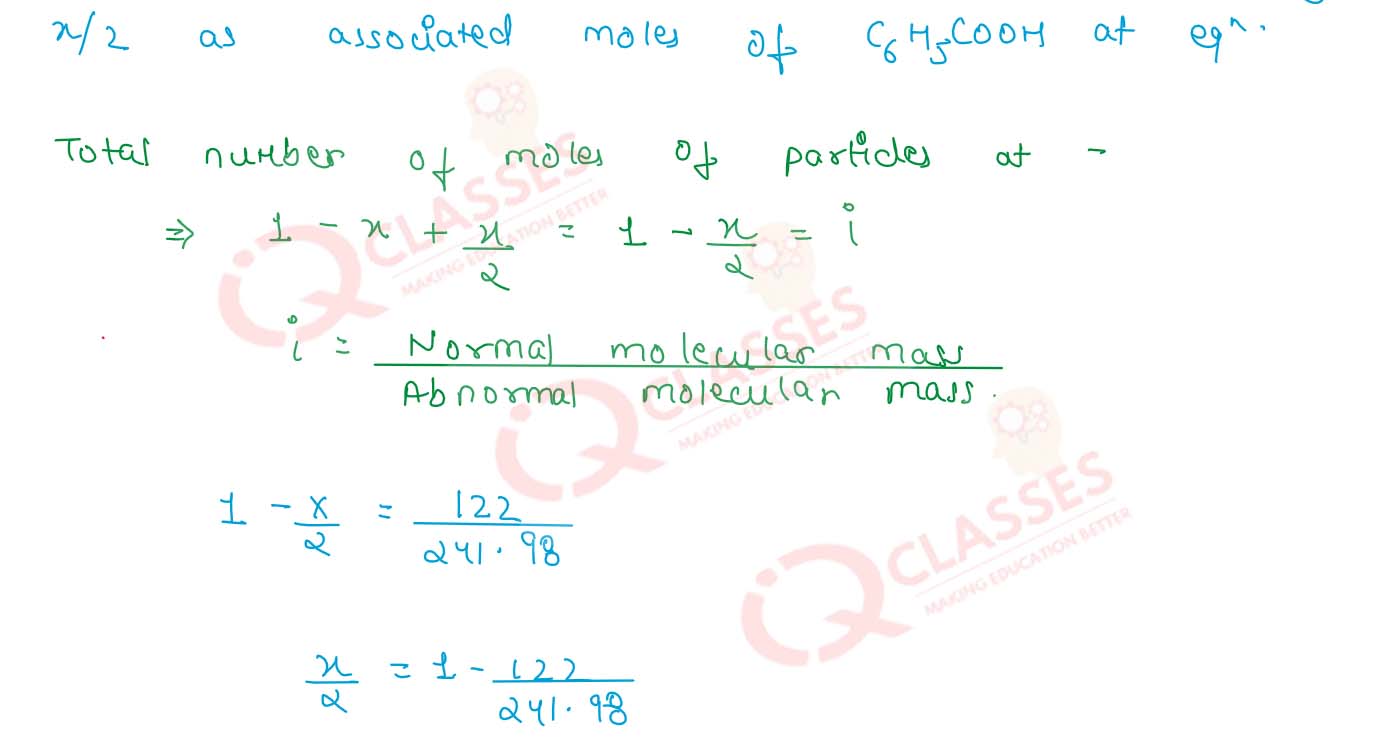 x/2 as associated moles of C6H5COOH at eqn.
Total number of moles of particles at -
⇒ 1 - x + x/2 = 1 - x/2 = i
i = Normal molecular mass / Abnormal molecular mass.
1 - x/2 = 122/241.98
x/2 = 1 - 122/241.98
iQ CLASSES
MAKING EDUCATION BETTER
iQ CLASSES
MAKING EDUCATION BETTER
iQ CLASSES
MAKING EDUCATION BETTER